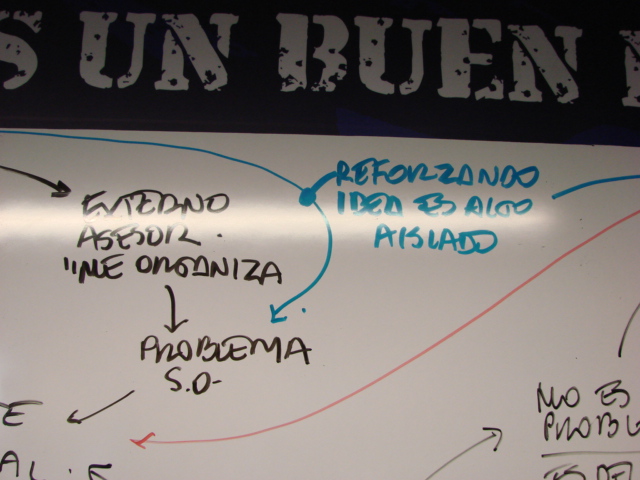 S UN BUEN
REFORZANDO
IDEA ES ALGO
AISLADO
EXTERNO
ASESOR.
"ME ORGANIZA
PROBLEMA
S.O-
E
AL.
NO ES
PROBL
ES DEL